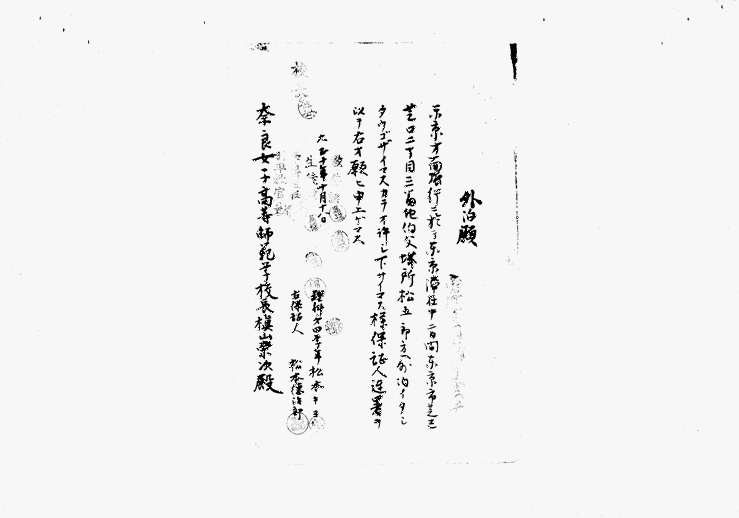 外泊願
東京方面旅行ニ於テ東京滞在中二日間東京市芝区
芝口二丁目三番地伯父 所松五郎方ヘ外泊イタシ
タウゴザイマスカラオ許シ下サイマス様保証人連署ヲ
以テ右オ願ヒ申上ゲマス
大正十年十月十八日
理科第四学年 松本
右保証人 松本 治郎
奈良女子高等師範学校長槇山榮次殿